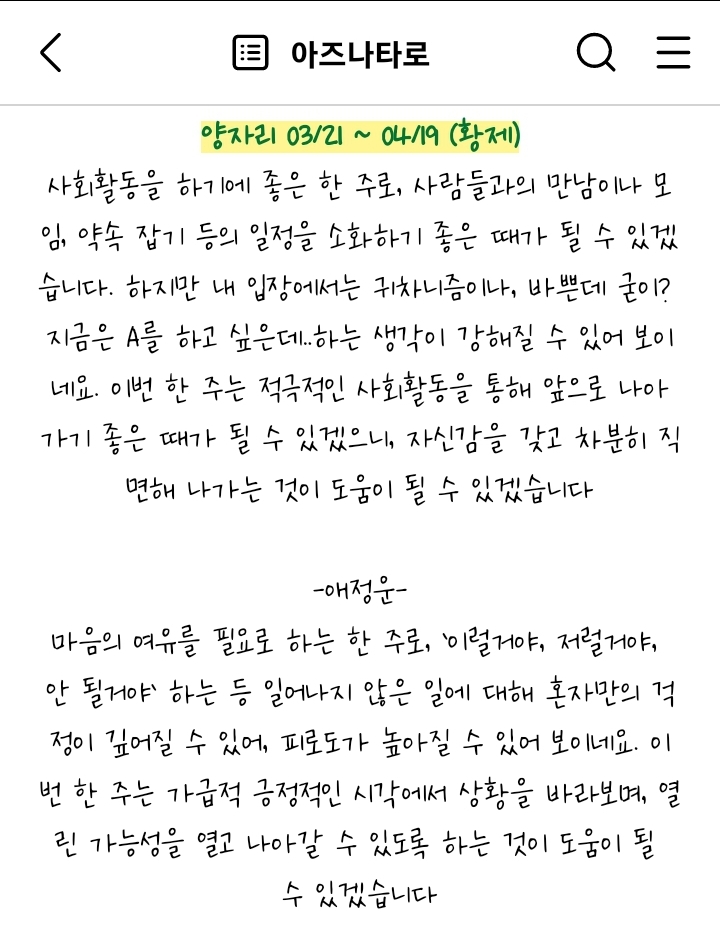 아즈나타로
양자리 03/21 ~ 04/19 (황제)
사회활동을 하기에 좋은 한 주로, 사람들과의 만남이나 모
임, 약속 잡기 등의 일정을 소화하기 좋은 때가 될 수 있겠
습니다. 하지만 내 입장에서는 귀차니즘이나, 바쁜데 굳이?
지금은 A를 하고 싶은데..하는 생각이 강해질 수 있어 보이
네요. 이번 한 주는 적극적인 사회활동을 통해 앞으로 나아
가기 좋은 때가 될 수 있겠으니, 자신감을 갖고 차분히 직
면해 나가는 것이 도움이 될 수 있겠습니다
-애정운-
마음의 여유를 필요로 하는 한 주로, '이럴거야, 저럴거야,
안 될거야' 하는 등 일어나지 않은 일에 대해 혼자만의 걱
정이 깊어질 수 있어, 피로도가 높아질 수 있어 보이네요. 이
번 한 주는 가급적 긍정적인 시각에서 상황을 바라보며, 열
린 가능성을 열고 나아갈 수 있도록 하는 것이 도움이 될
수 있겠습니다